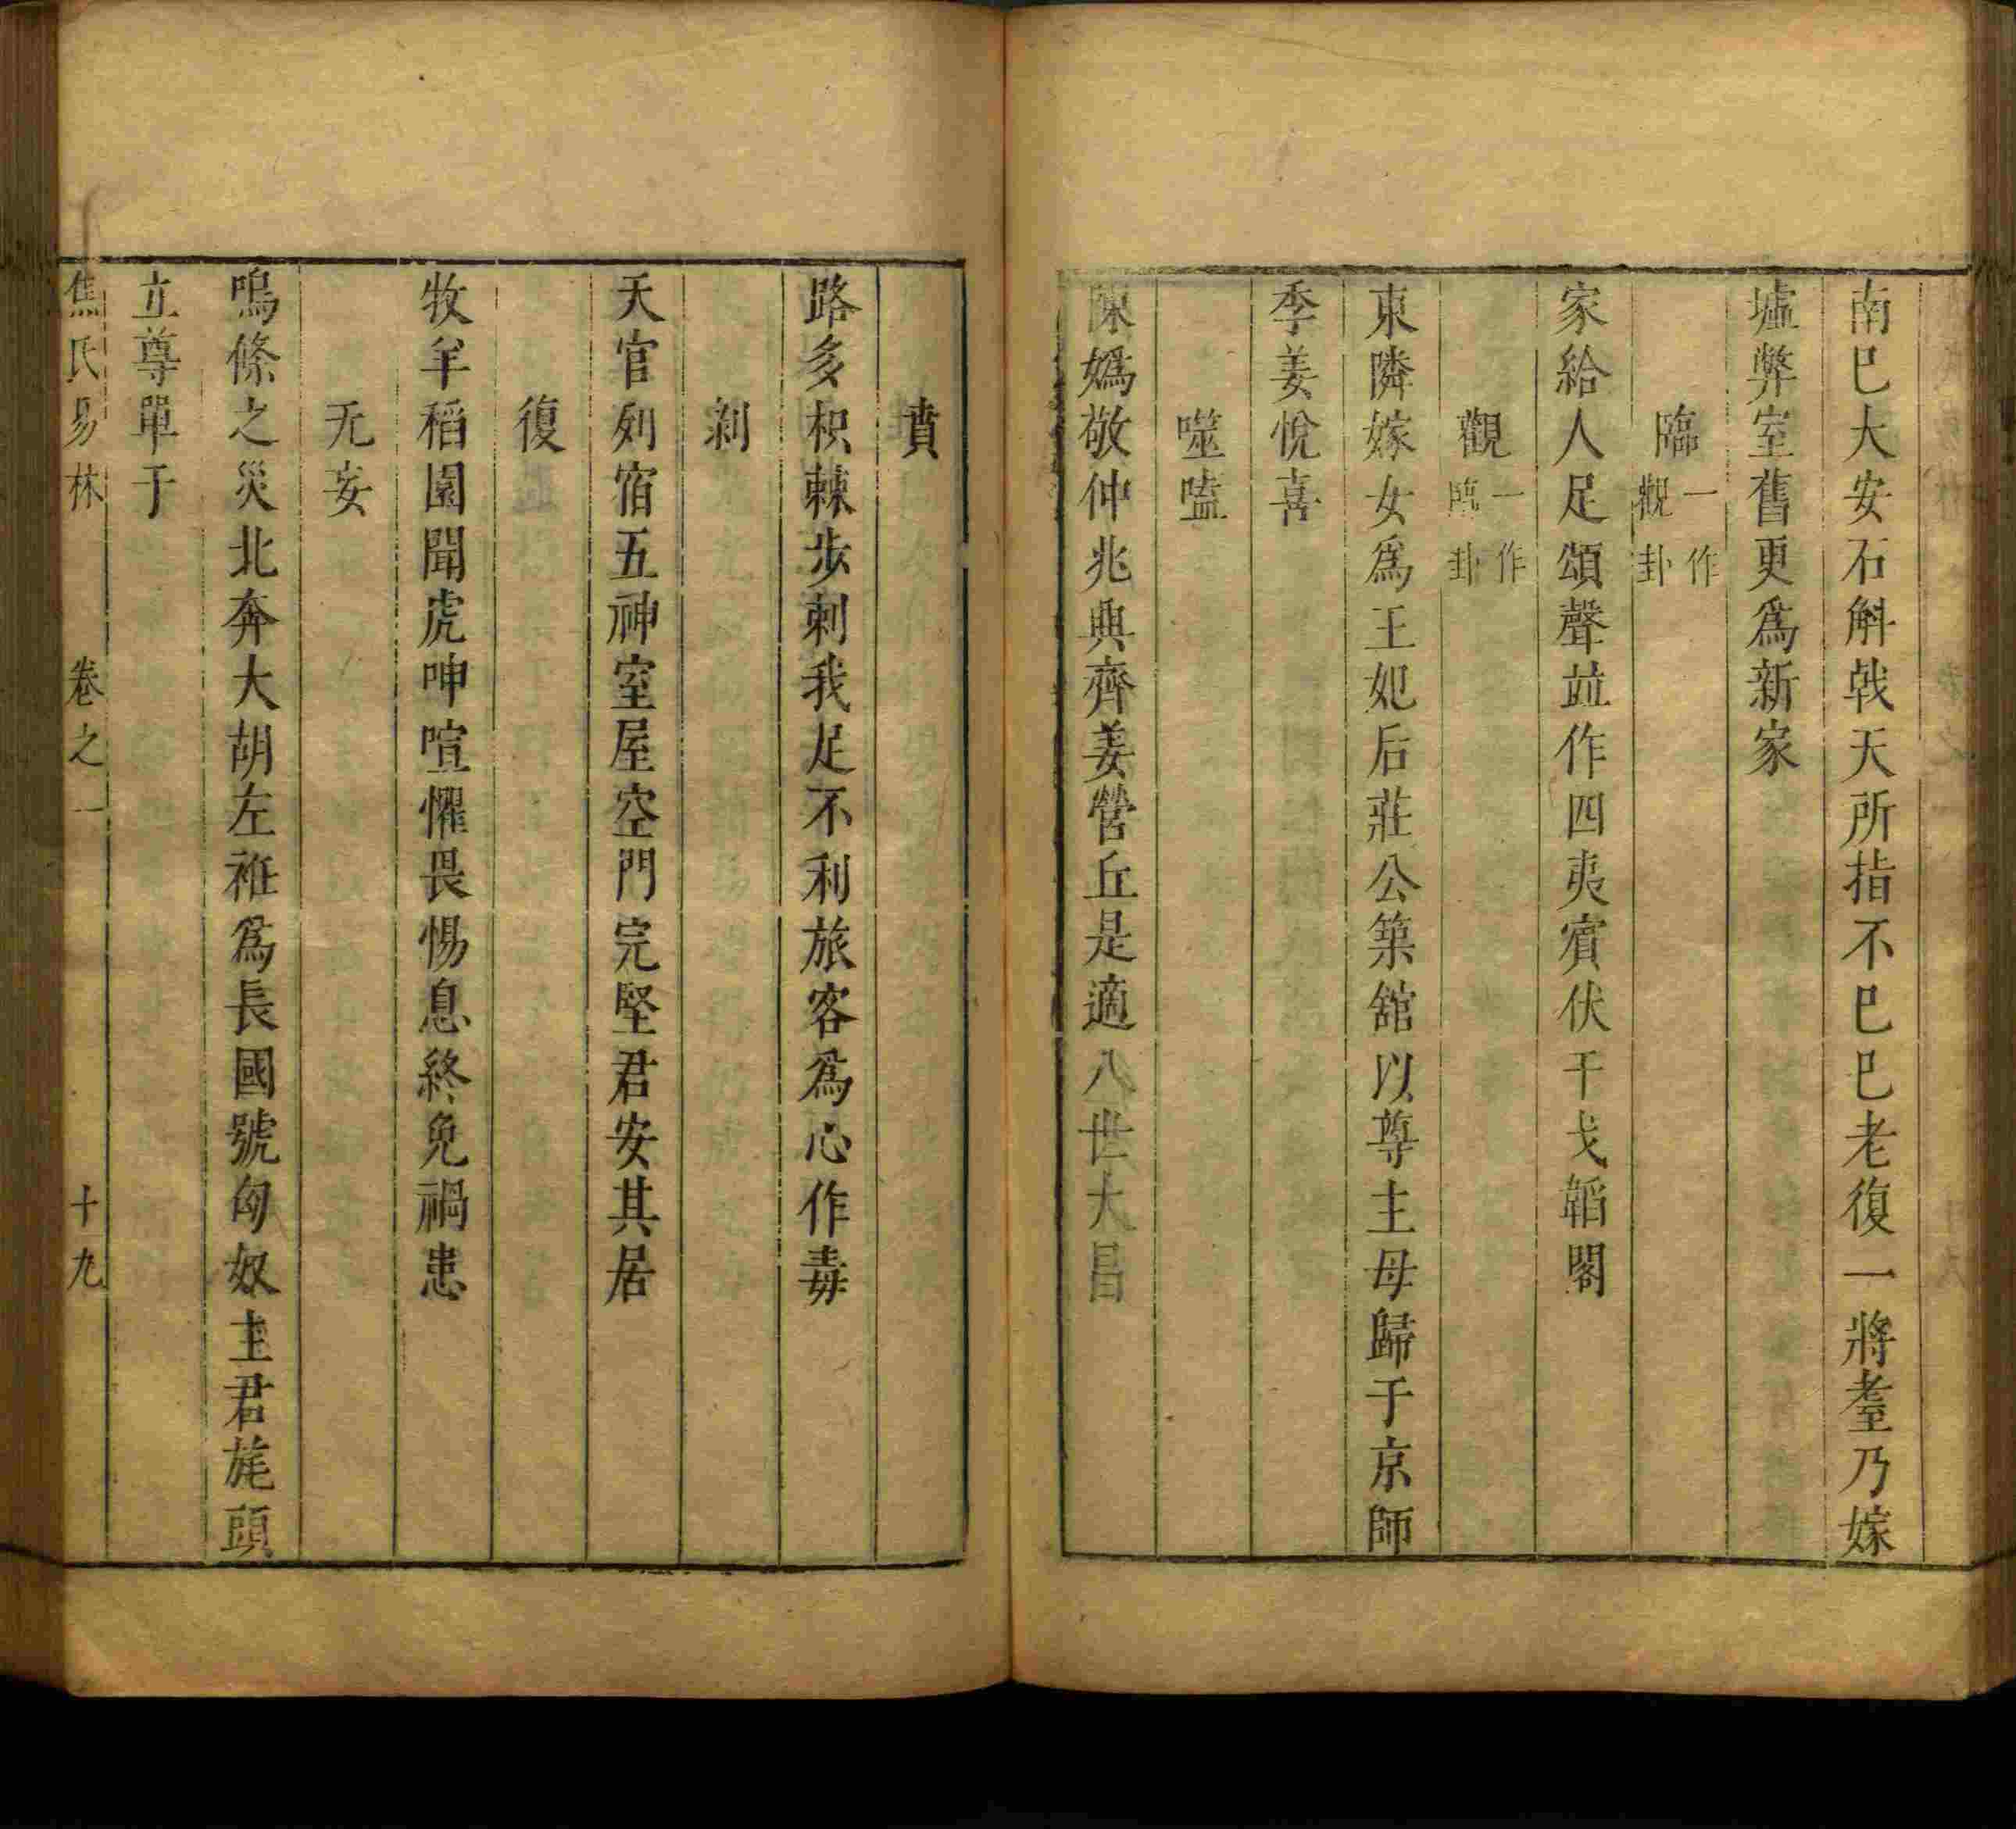 南巳大安石斛戟天所指不巳巳老復一將耋乃嫁
墟弊室舊更爲新家
臨一作觀卦
家給人足頌聲並作四夷賓伏干戈韜閣
觀一作臨卦
東隣嫁女爲王妃后莊公築舘以尊主母歸于京師
季姜悅喜
噬嗑
陳嬀敬仲兆興齊姜營丘是適八世大昌
賁
路多枳棘步刺我足不利旅客爲心作毒
剝
天官列宿五神室屋空門完堅君安其居
復
牧羊稻園聞虎呻喧懼畏惕息終免禍患
无妄
鳴條之災北奔大胡左袵爲長國號匈奴主君旄頭
立尊單于
焦氏易林 卷之一 十九